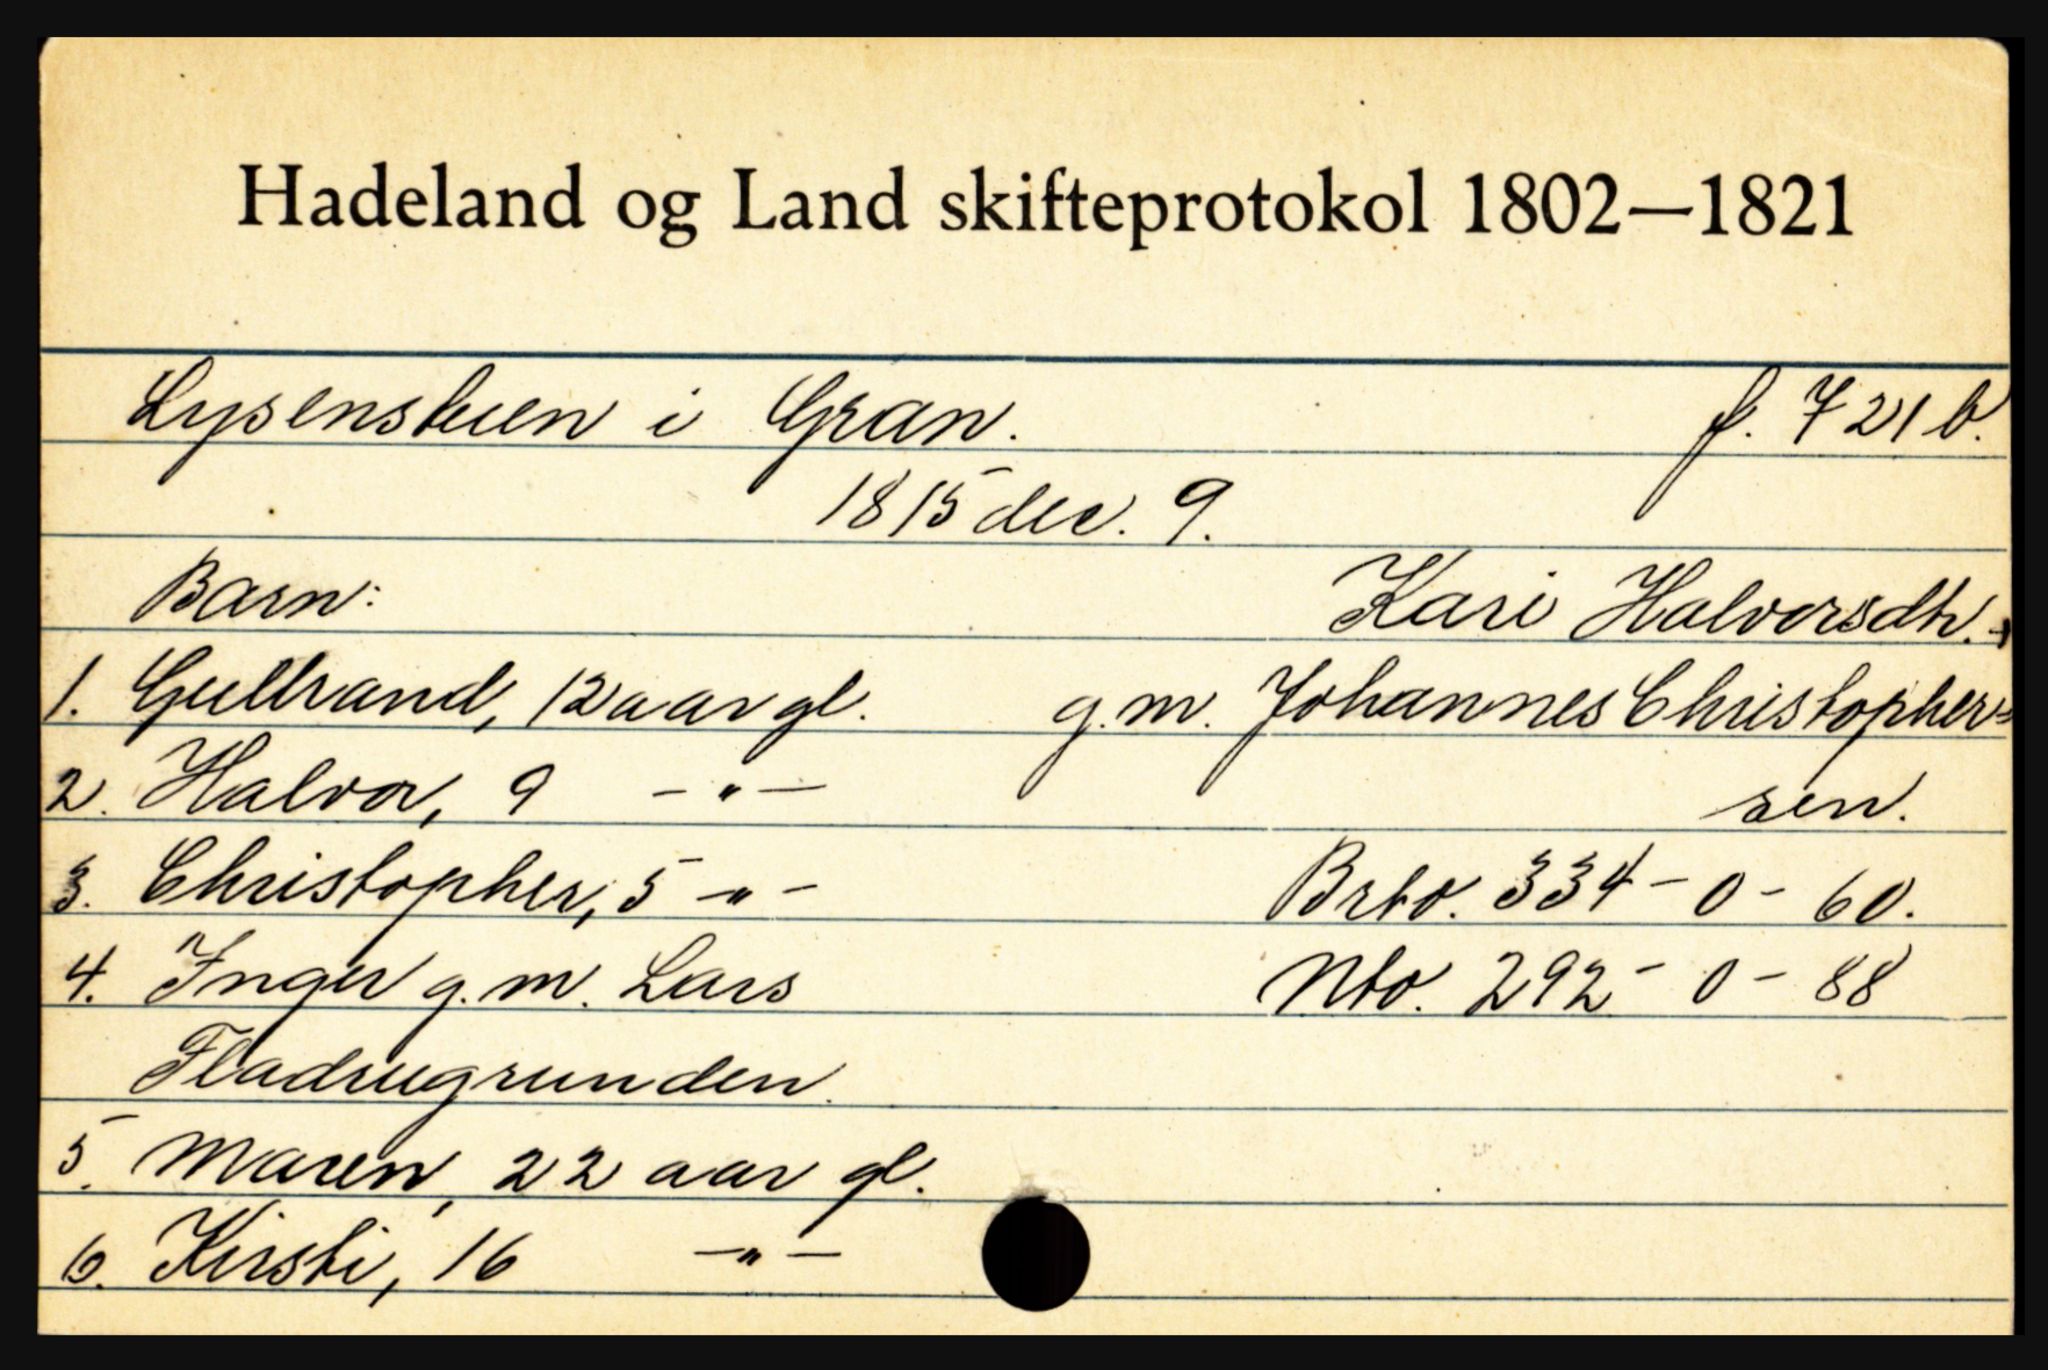 Hadeland og Land skifteprotokol 1802—1821
Lysensteen i Gran. f. 721 b.
1815 dec. 9.
Barn: Kari Halvorsdtr.
1. Gulbrand, 12 aar gl. g. m. Johannes Christopher=
2. Halvor, 9 -"- sen.
3. Christopher, 5 -"- Brto. 334 - 0 - 60.
4. Inger g. m. Lars Nto. 292 - 0 - 88
Fladrugrunden.
5. Maren, 22 aar gl.
6. Kirsti, 16 -"-